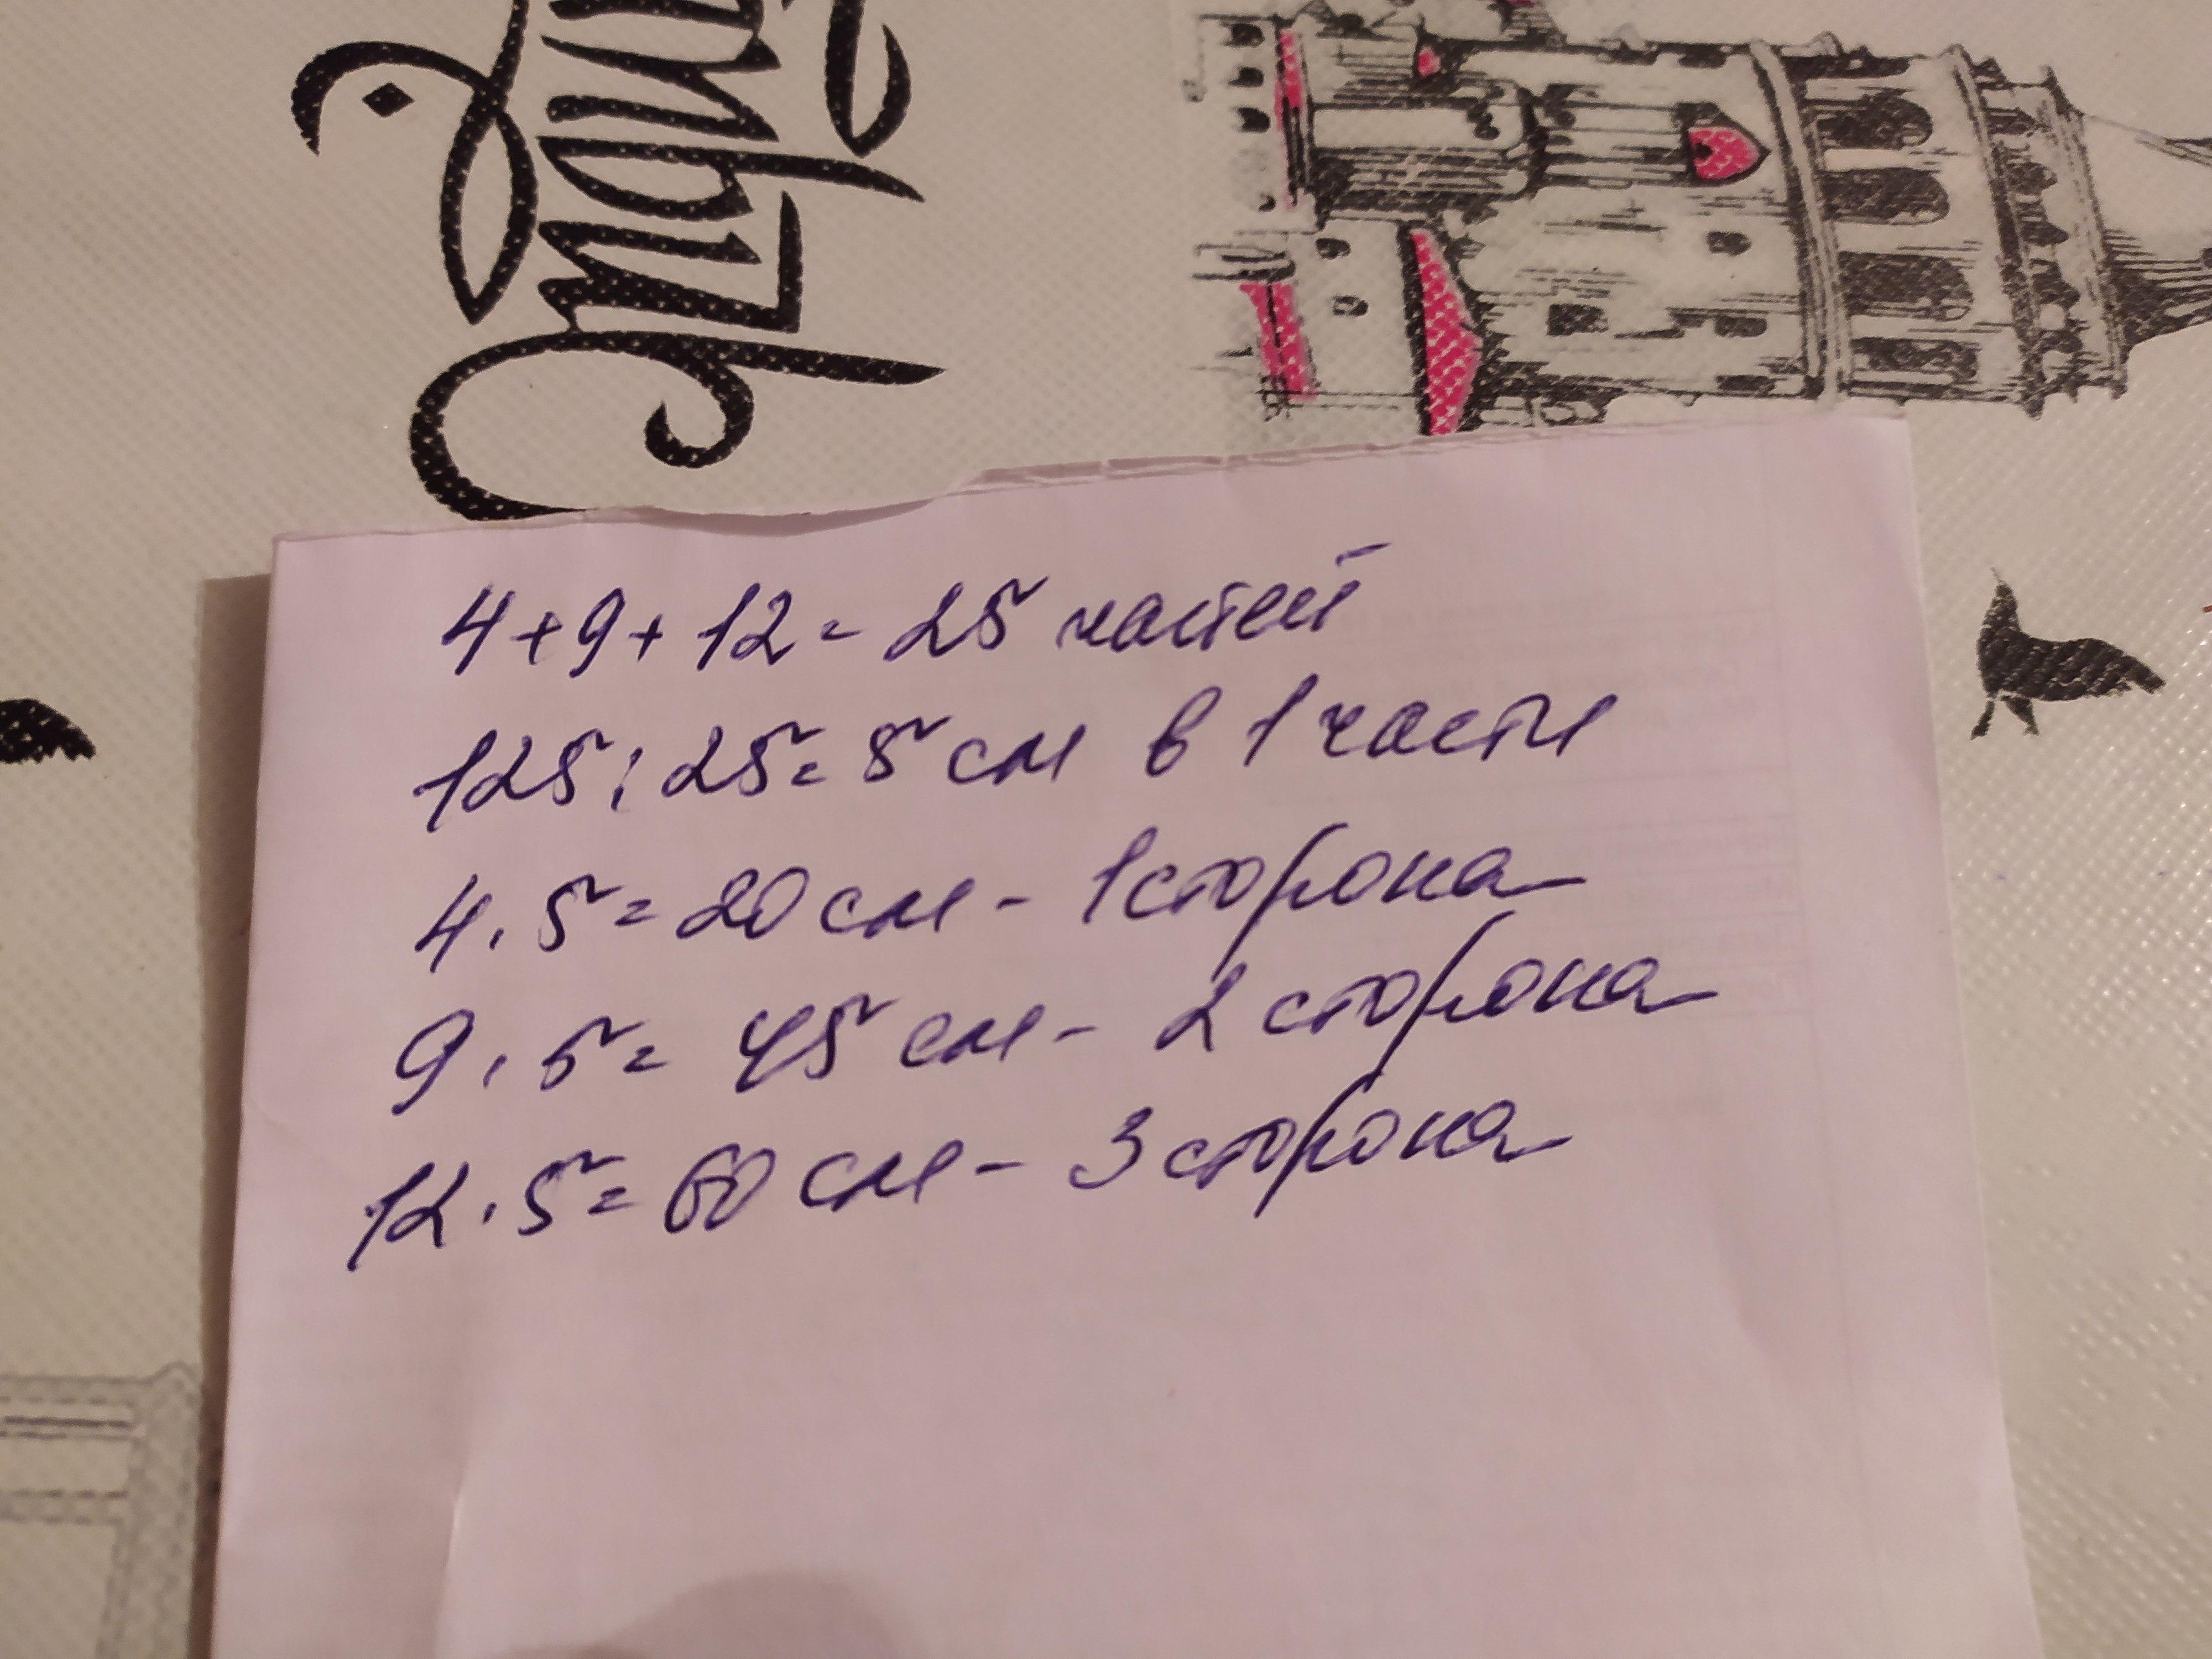 4+9+12=25 частей
125:25=5 см в 1 части
4·5=20 см - 1 сторона
9·5=45 см - 2 сторона
12·5=60 см - 3 сторона